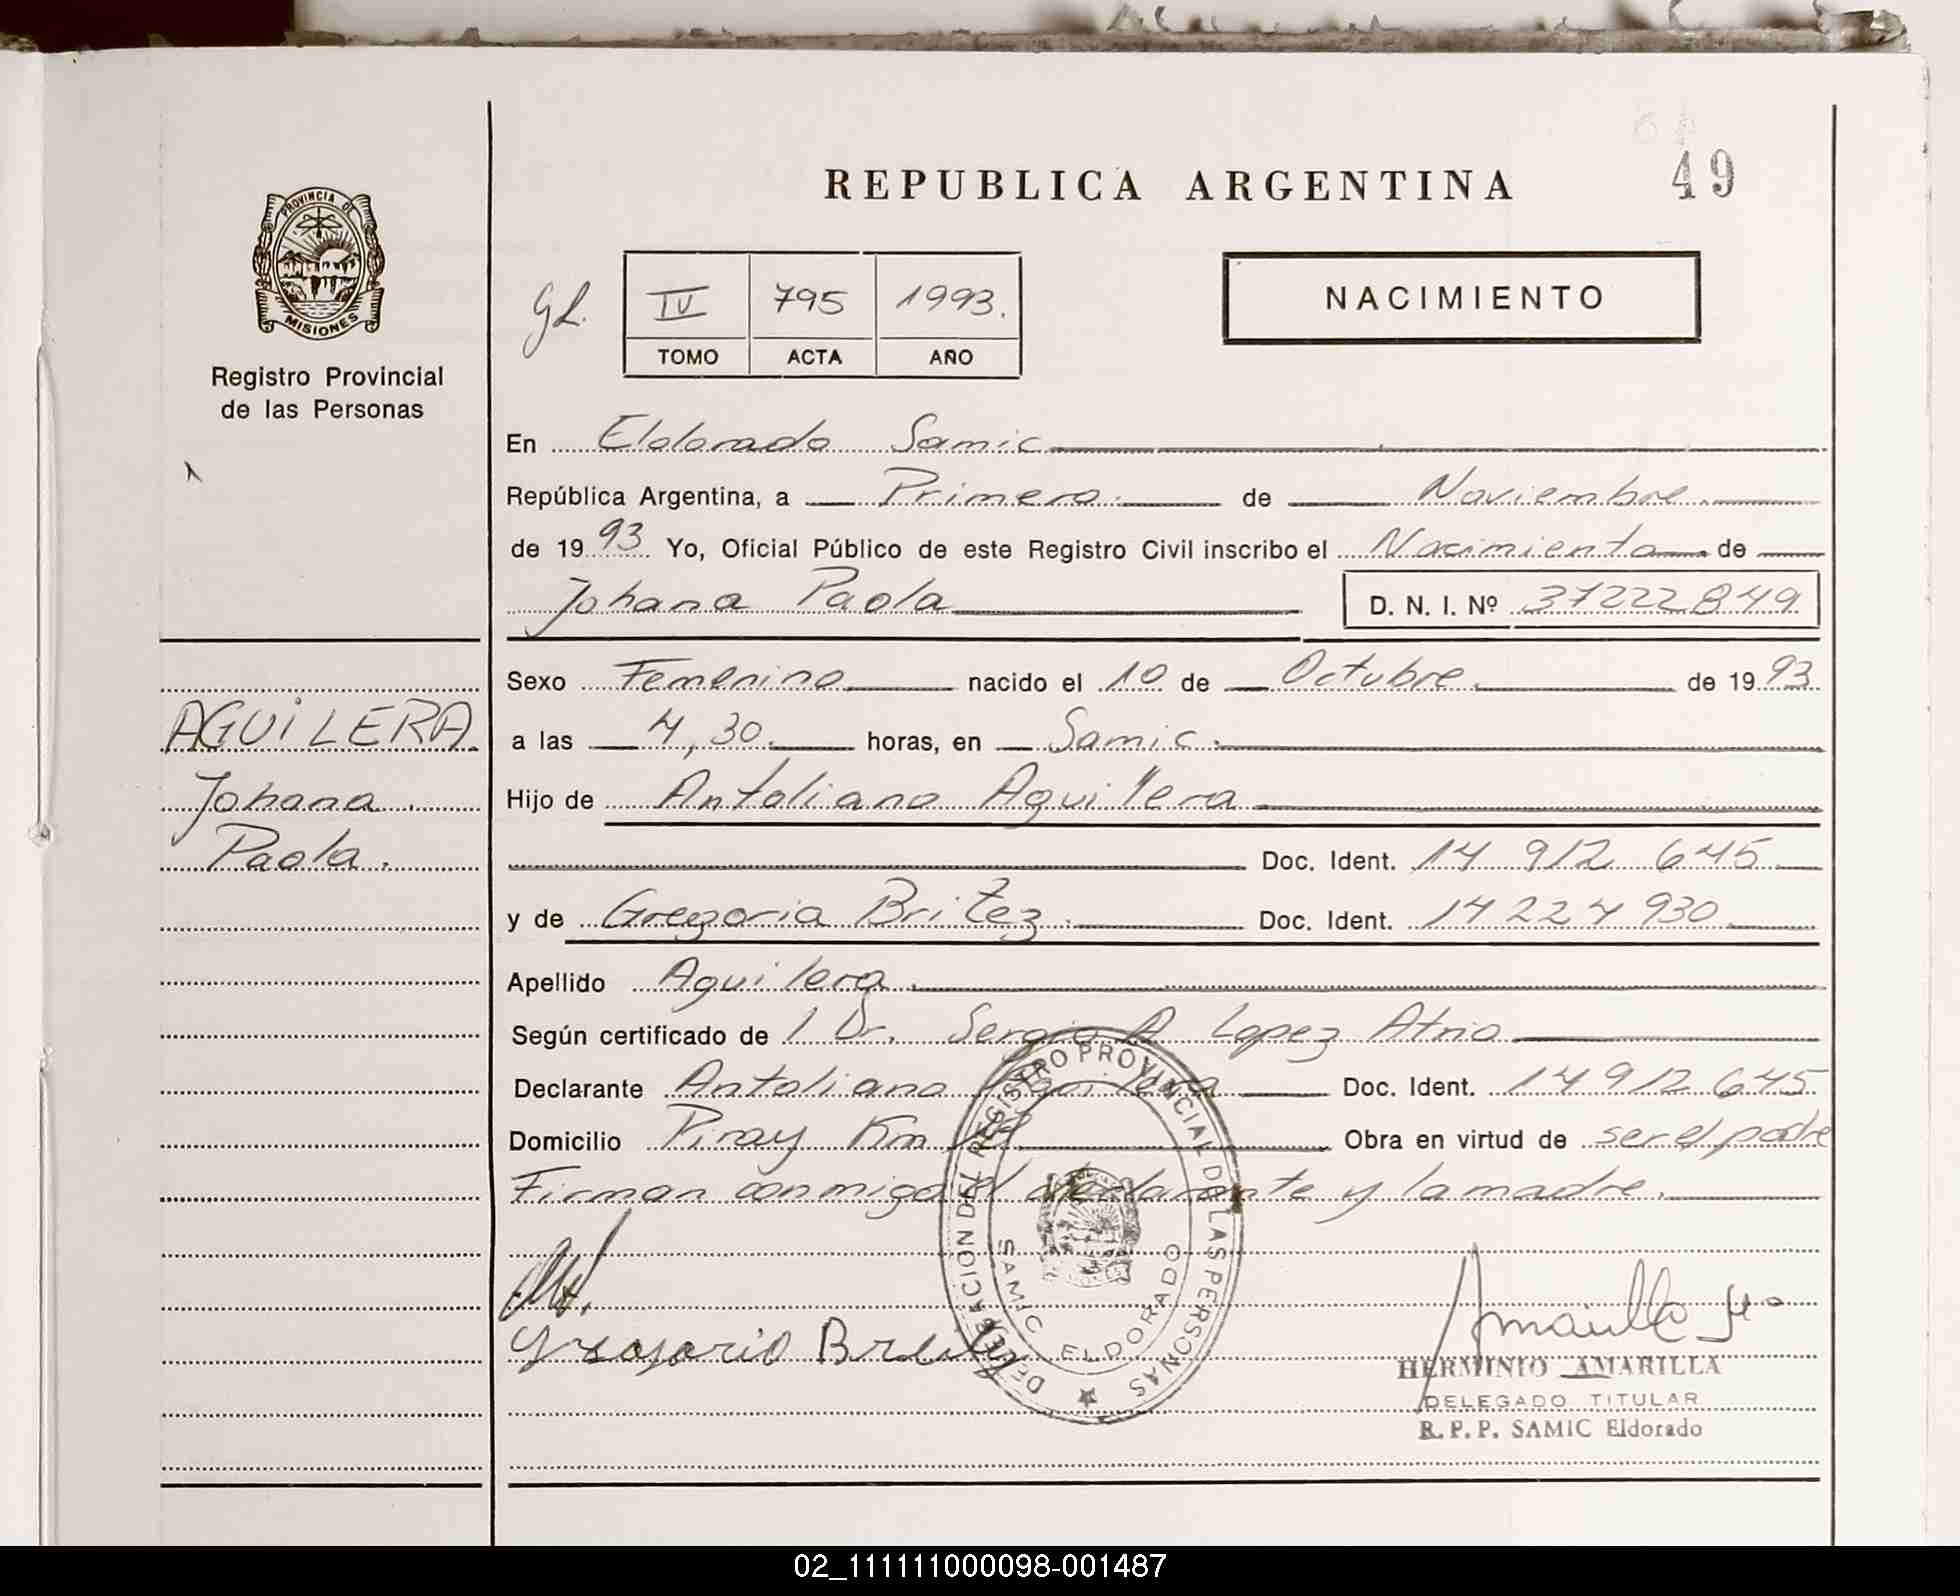 49
REPUBLICA ARGENTINA
PROVINCIA DE
MISIONES
Registro Provincial
de las Personas
gL.
IV 795 1993.
TOMO ACTA AÑO
NACIMIENTO
En Eldorado Samic
República Argentina, a Primero de Noviembre
de 1993 Yo, Oficial Público de este Registro Civil inscribo el Nacimiento de
Johana Paola D. N. I. Nº 37222849
Sexo Femenino nacido el 10 de Octubre de 1993
a las 4,30 horas, en Samic
Hijo de Antoliano Aguilera
Doc. Ident. 14 912 645
y de Gregoria Britez Doc. Ident. 14 224 930
Apellido Aguilera
Según certificado de l Dr. Sergio A Lopez Atrio
Declarante Antoliano Aguilera Doc. Ident. 14 912 645
Domicilio Piray Km Obra en virtud de ser el padre
Firman conmigo el declarante y la madre.
AGUILERA
Johana
Paola.
DELEGACION DEL REGISTRO PROVINCIAL DE LAS PERSONAS
SAMIC ELDORADO
HERMINIO AMARILLA
DELEGADO TITULAR
R. P. P. SAMIC Eldorado
02_111111000098-001487